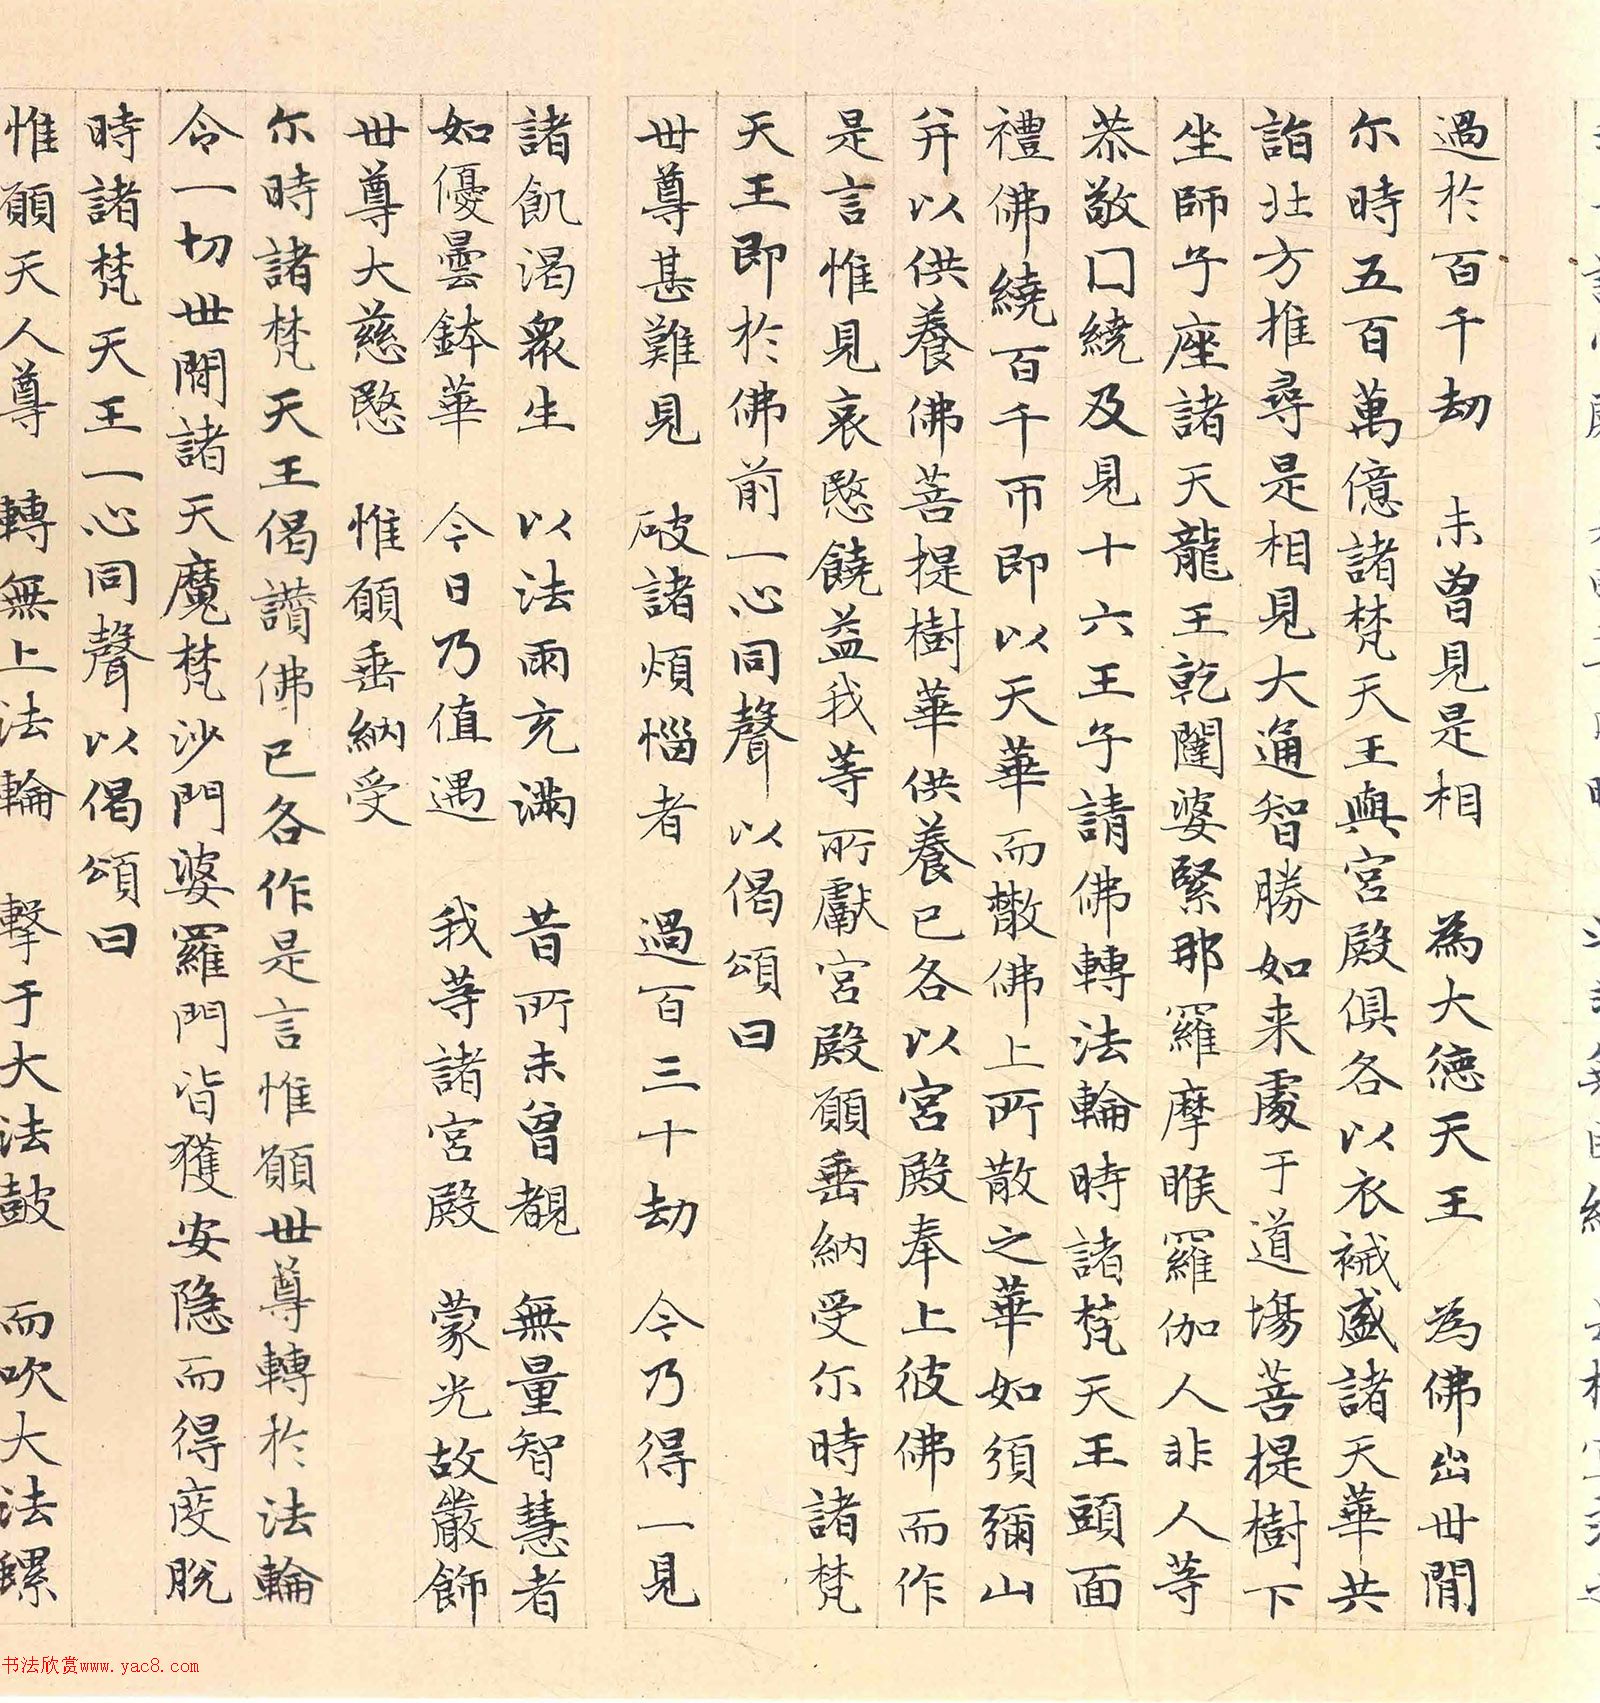 過於百千劫　未曾見是相　為大德天王　為佛出世間
尔時五百萬億諸梵天王與宮殿俱各以衣祴盛諸天華共
詣北方推尋是相見大通智勝如来處于道場菩提樹下
坐師子座諸天龍王乾闥婆緊那羅摩睺羅伽人非人等
恭敬囗繞及見十六王子請佛轉法輪時諸梵天王頭面
禮佛繞百千帀即以天華而散佛上所散之華如須彌山
并以供養佛菩提樹華供養已各以宮殿奉上彼佛而作
是言惟見哀愍饒益我等所獻宮殿願垂納受尔時諸梵
天王即於佛前一心同聲以偈頌曰
世尊甚難見　破諸煩惱者　過百三十劫　今乃得一見
諸飢渴衆生　以法雨充滿　昔所未曾覩　無量智慧者
如優曇鉢華　今日乃值遇　我等諸宮殿　蒙光故嚴飾
世尊大慈愍　惟願垂納受
尔時諸梵天王偈讚佛已各作是言惟願世尊轉於法輪
令一切世間諸天魔梵沙門婆羅門皆獲安隱而得度脫
時諸梵天王一心同聲以偈頌曰
惟願天人尊　轉無上法輪　擊于大法鼓　而吹大法螺
书法欣赏www.yac8.com